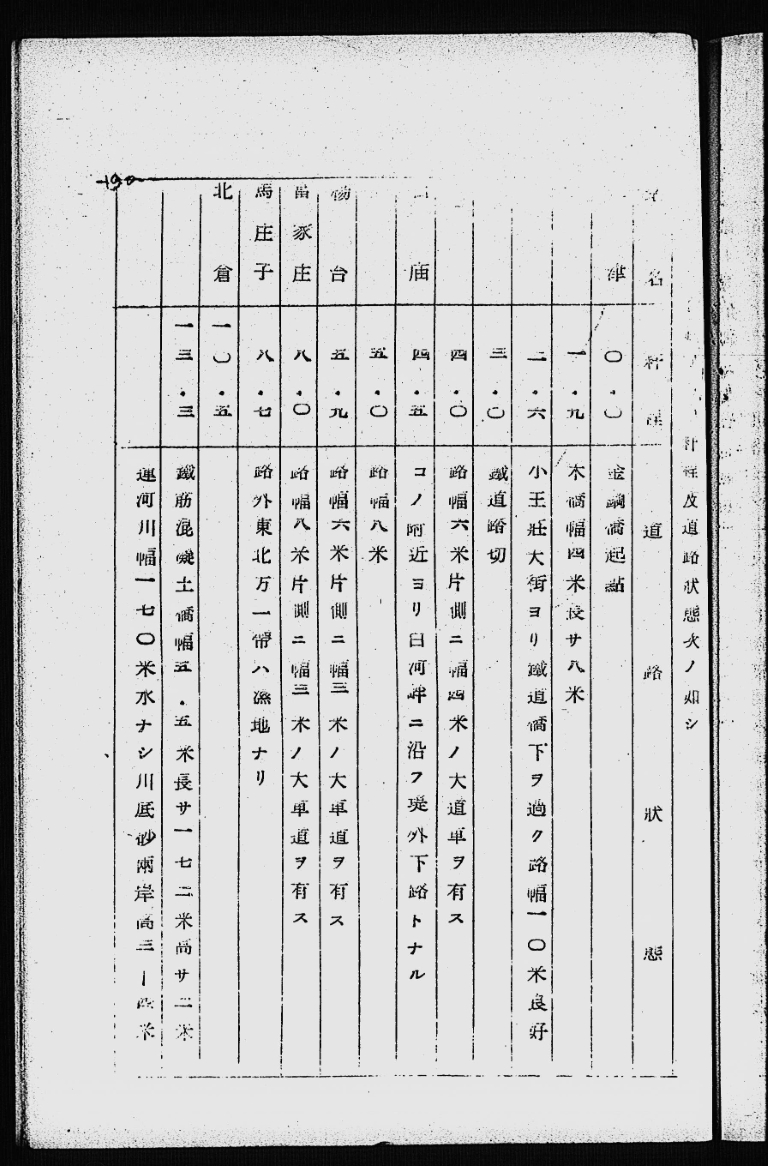 計程及道路狀態次ノ如シ
名 杆程 道路狀態
津 〇.〇 金鋼橋起點
一.九 木橋幅四米長サ八米
二.六 小王莊大街ヨリ鐵道橋下ヲ過ク路幅一〇米良好
三.〇 鐵道踏切
四.〇 路幅六米片側ニ幅四米ノ大道車ヲ有ス
庙 四.五 コノ附近ヨリ白河岸ニ沿フ堤外下路トナル
五.〇 路幅八米
楊台 五.九 路幅六米片側ニ幅三米ノ大車道ヲ有ス
苗家庄 八.〇 路幅八米片側ニ幅三米ノ大車道ヲ有ス
馬庄子 八.七 路外東北万一帶ハ濕地ナリ
北倉 一〇.五
一三.三 鐵筋混凝土橋幅五.五米長サ一七二米高サ二米
運河川幅一七〇米水ナシ川底砂兩岸高三ー四米
190